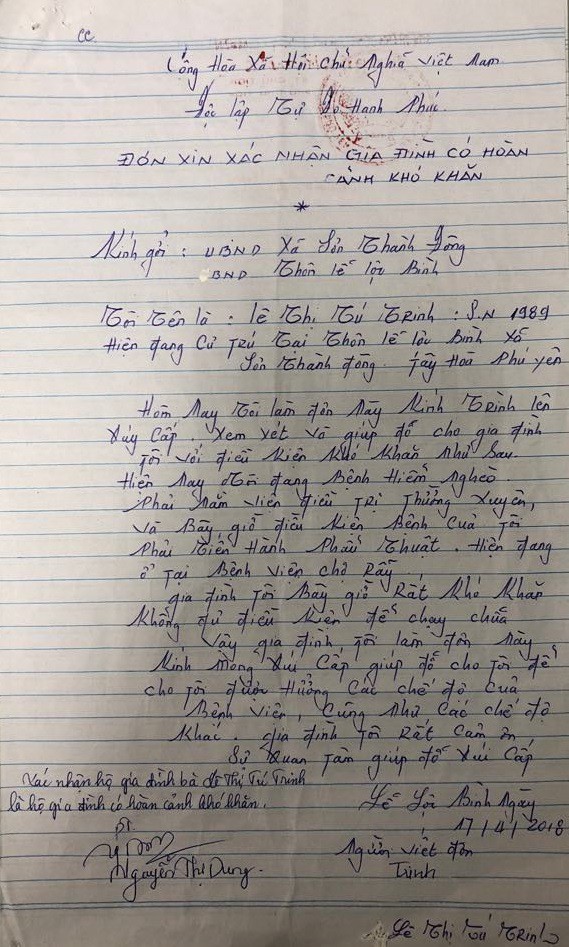 CC
Cộng Hòa Xã Hội Chủ Nghĩa Việt Nam
Độc lập Tự Do Hạnh Phúc
ĐƠN XIN XÁC NHẬN GIA ĐÌNH CÓ HOÀN
CẢNH KHÓ KHĂN
*
Kính gởi : UBND Xã Sơn Thành Đông
BND Thôn lễ lộc Bình
Tôi Tên là : lê Thị Tú Trinh : S.N 1989
Hiện đang Cư Trú Tại Thôn lễ lộc Bình Xã
Sơn Thành đông. Tây Hoà Phú yên
Hôm Nay Tôi làm đơn Này Kính Trình lên
Quý Cấp. Xem xét và giúp đỡ cho gia đình
Tôi với điều Kiện Khó Khăn Như Sau.
Hiện Nay Tôi đang Bệnh Hiểm Nghèo
Phải Nằm Viện điều Trị Thường Xuyên,
Và Bây giờ điều Kiện Bệnh Của Tôi
Phải Tiến Hành Phẩu Thuật. Hiện đang
ở Tại Bệnh Viện Chợ Rẫy
gia đình Tôi Bây giờ Rất Khó Khăn
Không đủ điều Kiện để chạy chữa
Vậy gia đình Tôi làm đơn Này
Kính mong Quí Cấp giúp đỡ cho Tôi để
cho Tôi được Hưởng Các chế độ Của
Bệnh Viện, Cũng Như Các chế độ
Khác. gia đình Tôi Rất Cảm ơn,
Sự Quan Tâm giúp đỡ Quí Cấp
Xác nhận hộ gia đình bà lê Thị Tú Trinh
là hộ gia đình có hoàn cảnh khó khăn.
Lễ Lộc Bình Ngày
17/4/2018
Nguyễn Thị Dung.
Người viết đơn
Trinh
Lê Thị Tú Trinh